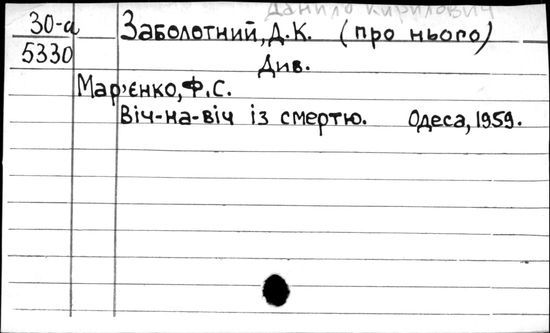 Данило Кирилович
30-а Заболотний, Д.К. (про нього)
5330 Див.
Мар'єнко, Ф.С.
Віч-на-віч із смертю. Одеса, 1959.